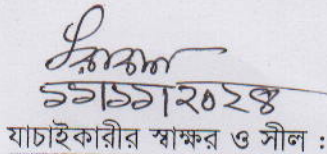 ১১/১১/২০২৪
যাচাইকারীর স্বাক্ষর ও সীল :